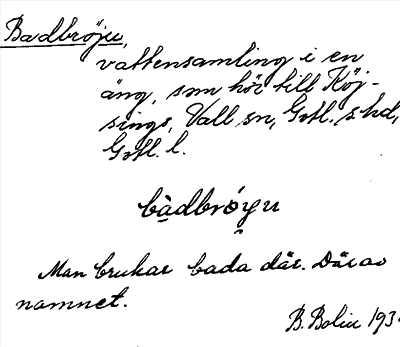 Badbröju,
vattensamling i en
äng, som hör till Köj-
sings, Vall sn, Gotl. s. hd,
Gotl. l.
bàdbróyu
Man brukar bada där. Därav
namnet.
B. Bolin 193